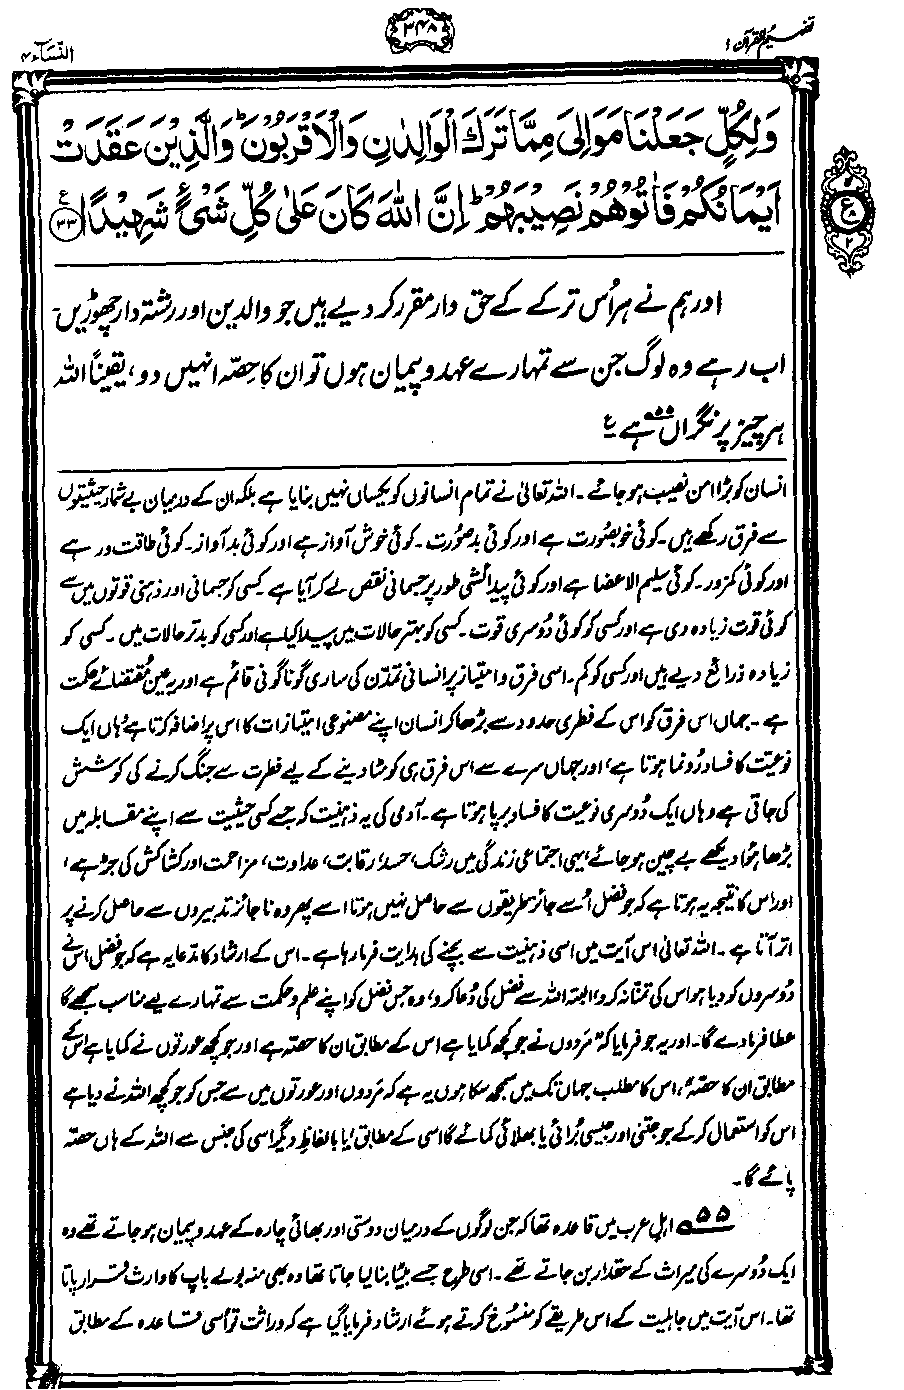 تفہیم القرآن ۱
۳۴۸
النسآء ۴
وَلِكُلٍّ جَعَلْنَا مَوَالِیَ مِمَّا تَرَكَ الْوَالِدٰنِ وَالْاَقْرَبُوْنَ ؕ وَالَّذِیْنَ عَقَدَتْ
اَیْمَانُكُمْ فَاٰتُوْهُمْ نَصِیْبَهُمْ ؕ اِنَّ اللّٰهَ كَانَ عَلٰی كُلِّ شَیْءٍ شَهِیْدًا ﴿۳۳﴾ ع
اور ہم نے ہر اُس ترکے کے حق دار مقرر کر دیے ہیں جو والدین اور رشتہ دار چھوڑیں۔
اب رہے وہ لوگ جن سے تمہارے عہد و پیمان ہوں تو ان کا حصّہ انہیں دو، یقیناً اللہ
ہر چیز پر نگراں ہے ۵۵ ؏
انسان کو بڑا امن نصیب ہو جائے۔ اللہ تعالیٰ نے تمام انسانوں کو یکساں نہیں بنایا ہے بلکہ ان کے درمیان بے شمار حیثیتوں
سے فرق رکھے ہیں۔ کوئی خوبصورت ہے اور کوئی بدصورت۔ کوئی خوش آواز ہے اور کوئی بد آواز۔ کوئی طاقت ور ہے
اور کوئی کمزور۔ کوئی سلیم الاعضا ہے اور کوئی پیدائشی طور پر جسمانی نقص لے کر آیا ہے۔ کسی کو جسمانی اور ذہنی قوتوں میں سے
کوئی قوت زیادہ دی ہے اور کسی کو کوئی دُوسری قوت۔ کسی کو بہتر حالات میں پیدا کیا ہے اور کسی کو بدتر حالات میں۔ کسی کو
زیادہ ذرائع دیے ہیں اور کسی کو کم۔ اسی فرق و امتیاز پر انسانی تمدّن کی ساری گوناگونی قائم ہے اور یہ عین مُقتضائے حکمت
ہے۔ جہاں اس فرق کو اس کے فطری حدود سے بڑھا کر انسان اپنے مصنوعی امتیازات کا اس پر اضافہ کرتا ہے وُہاں ایک
نوعیّت کا فساد رُونما ہوتا ہے، اور جہاں سرے سے اس فرق ہی کو مٹا دینے کے لیے فطرت سے جنگ کرنے کی کوشش
کی جاتی ہے وہاں ایک دُوسری نوعیت کا فساد برپا ہوتا ہے۔ آدمی کی یہ ذہنیت کہ جسے کسی حیثیت سے اپنے مقابلہ میں
بڑھا ہُوا دیکھے بے چین ہو جائے، یہی اجتماعی زندگی میں رشک، حسد، رقابت، عداوت، مزاحمت اور کشاکش کی جڑ ہے،
اور اس کا نتیجہ یہ ہوتا ہے کہ جو فضل اُسے جائز طریقوں سے حاصل نہیں ہوتا اسے پھر وہ ناجائز تدبیروں سے حاصل کرنے پر
اتر آتا ہے۔ اللہ تعالیٰ اس آیت میں اسی ذہنیت سے بچنے کی ہدایت فرما رہا ہے۔ اس کے ارشاد کا مدّعا یہ ہے کہ جو فضل اس نے
دُوسروں کو دیا ہو اس کی تمنّا نہ کرو، البتہ اللہ سے فضل کی دُعا کرو، وہ جس فضل کو اپنے علم و حکمت سے تمہارے لیے مناسب سمجھے گا
عطا فرما دے گا۔ اور یہ جو فرمایا کہ "مَردوں نے جو کچھ کمایا ہے اس کے مطابق ان کا حصّہ ہے اور جو کچھ عورتوں نے کمایا ہے اُس کے
مطابق ان کا حصّہ"، اس کا مطلب جہاں تک میں سمجھ سکا ہوں یہ ہے کہ مَردوں اور عورتوں میں سے جس کو جو کچھ اللہ نے دیا ہے
اس کو استعمال کر کے جو جتنی اور جیسی بُرائی یا بھلائی کمائے گا اسی کے مطابق، یا بالفاظِ دیگر اسی کی جنس سے اللہ کے ہاں حصّہ
پائے گا۔
۵۵ اہلِ عرب میں قاعدہ تھا کہ جن لوگوں کے درمیان دوستی اور بھائی چارہ کے عہد و پیمان ہو جاتے تھے وہ
ایک دُوسرے کی میراث کے حقدار بن جاتے تھے۔ اسی طرح جسے بیٹا بنا لیا جاتا تھا وہ بھی منہ بولے باپ کا وارث قرار پاتا
تھا۔ اس آیت میں جاہلیت کے اس طریقے کو منسُوخ کرتے ہوئے ارشاد فرمایا گیا ہے کہ وراثت تو اُسی قاعدہ کے مطابق
ع
۸
۲